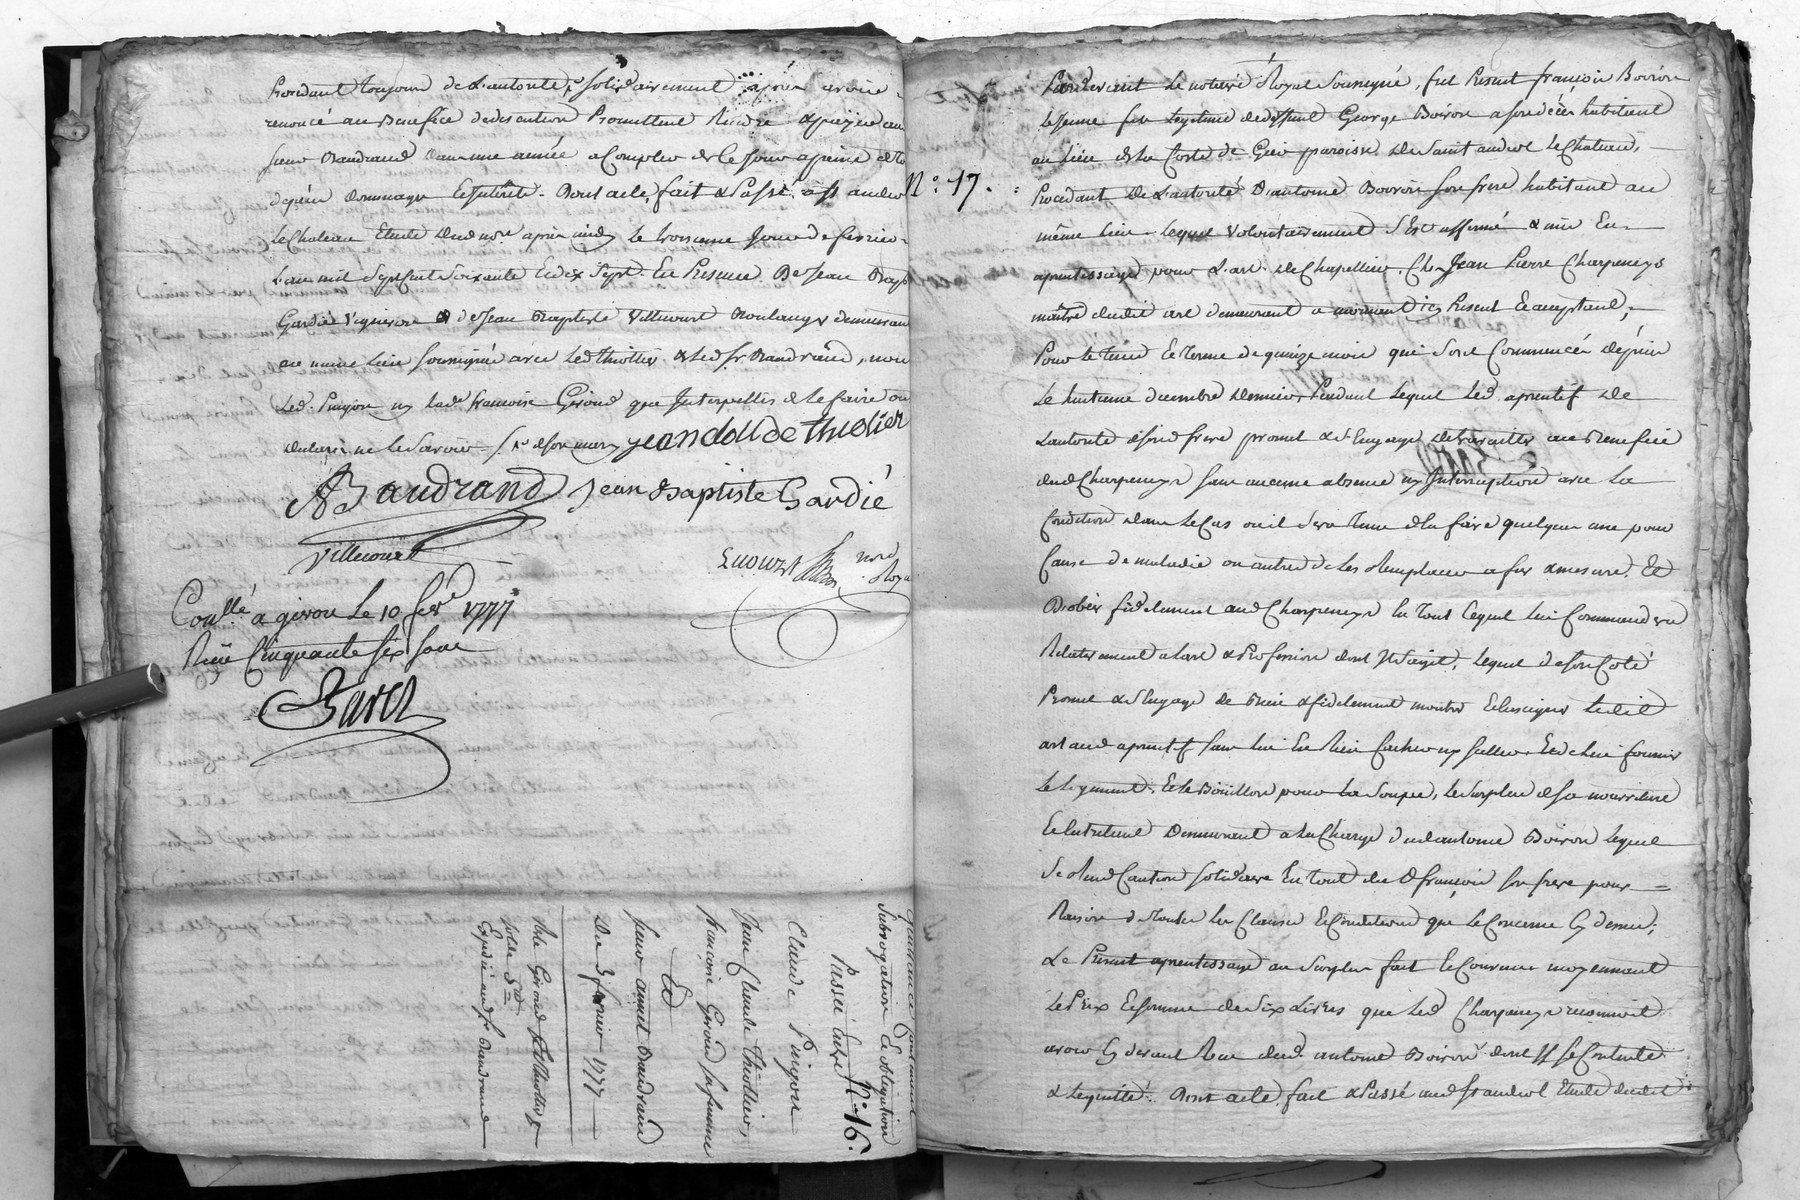 Procedant toujours de L'autorité, solidairement après avoir
renoncé au Benefice de discution Promettent Rendre & payer au
sieur Baudrand dans une année a Compter de ce jour a peine de to
depens dommages Et interets. Dont acte, fait & Passé a st andeol
le Chateau Etude dud nore. après midy le troisieme jour de fevrier
L'an mil Sept Cent Soixante Et dix Sept. En Presence De Jean Bapt
Gardié vigneron & de Jean Baptiste Villecourt Boulanger demeurant
au meme lieu soussignés avec Led thiollier & led sr Baudrand, non
Led. Pinjon ny lad. francoise Giroud que Interpellés de le faire ont
declaré ne le Savoir jean clode thiolier
ABaudrand Jean Baptiste Gardié
Villecourt
nore Roya
Conllé a givors Le 10 fevr 1777
Reçu Cinquante six sous
N°. 16.
quittance
Subrogation & obligation
Passée Entre
Claude Pinjon
Jean Claude thiollier,
françoise Giroud sa femme
Et
sieur annet Baudrand
Du 3 fevrier 1777
Expedié aud sr Baudrand
N°. 17.
Pardevant Le notaire Royal Soussigné, fut Present françois Boiron
Lejeune fils Legitime de deffunt George Boiron a son décès habitant
au Lieu de la Coste de Gier paroisse De Saint andeol le Chateau,
Procedant De L'autorité D'antoine Boiron son frere habitant au
même Lieu. Lequel Volontairement S'Est affermé & mis En
aprentissage pour L'art De Chapellier, Chez Jean Pierre Charpenay
maitre dudit art demeurant a mornant icy Present Et acceptant,
Pour le tems Et terme de quinze mois qui sont Commencés depuis
Le huitieme decembre Dernier, Pendant Lequel Led. aprentif De
L'autorité de son d frere promet & s'Engage de travailler au Benefice
dud Charpenay sans aucune absence ny Interruption avec La
Condition dans Le Cas ou il sera tenu d'En faire quelques unes pour
Cause de maladie ou autre de Les Remplacer a fur & mesure. Et
D'obéir fidelement aud Charpenay En Tout Cequil lui Commandera
Relativement a l'art & Profession dont Il s'agit, Lequel de son Coté
Promet & s'Engage de Bien & fidelement montrer & Enseigner Ledit
art aud aprentif sans lui En Rien Cacher ny Celler, Et de lui fournir
Le Logement, Et le Boüillon pour La Soupe, Le Surplus de sa nourriture
Et Entretient Demeurant a La Charge dud antoine Boiron Lequel
Se Rend Caution solidaire En tout dud françois son frere pour
Raison de toutes les Clauses Et Conditions qui Le Concerne Cy dessus;
Le Present aprentissage au Surplus fait Et Convenu moyennant
Le Prix Et somme de Six Livres que Led Charpenay reconnoit
avoir Cy devant Reçu dud. antoine Boiron dont Il se Contente
& Lequitte. Dont acte fait & Passé aud St andeol Etude dudit